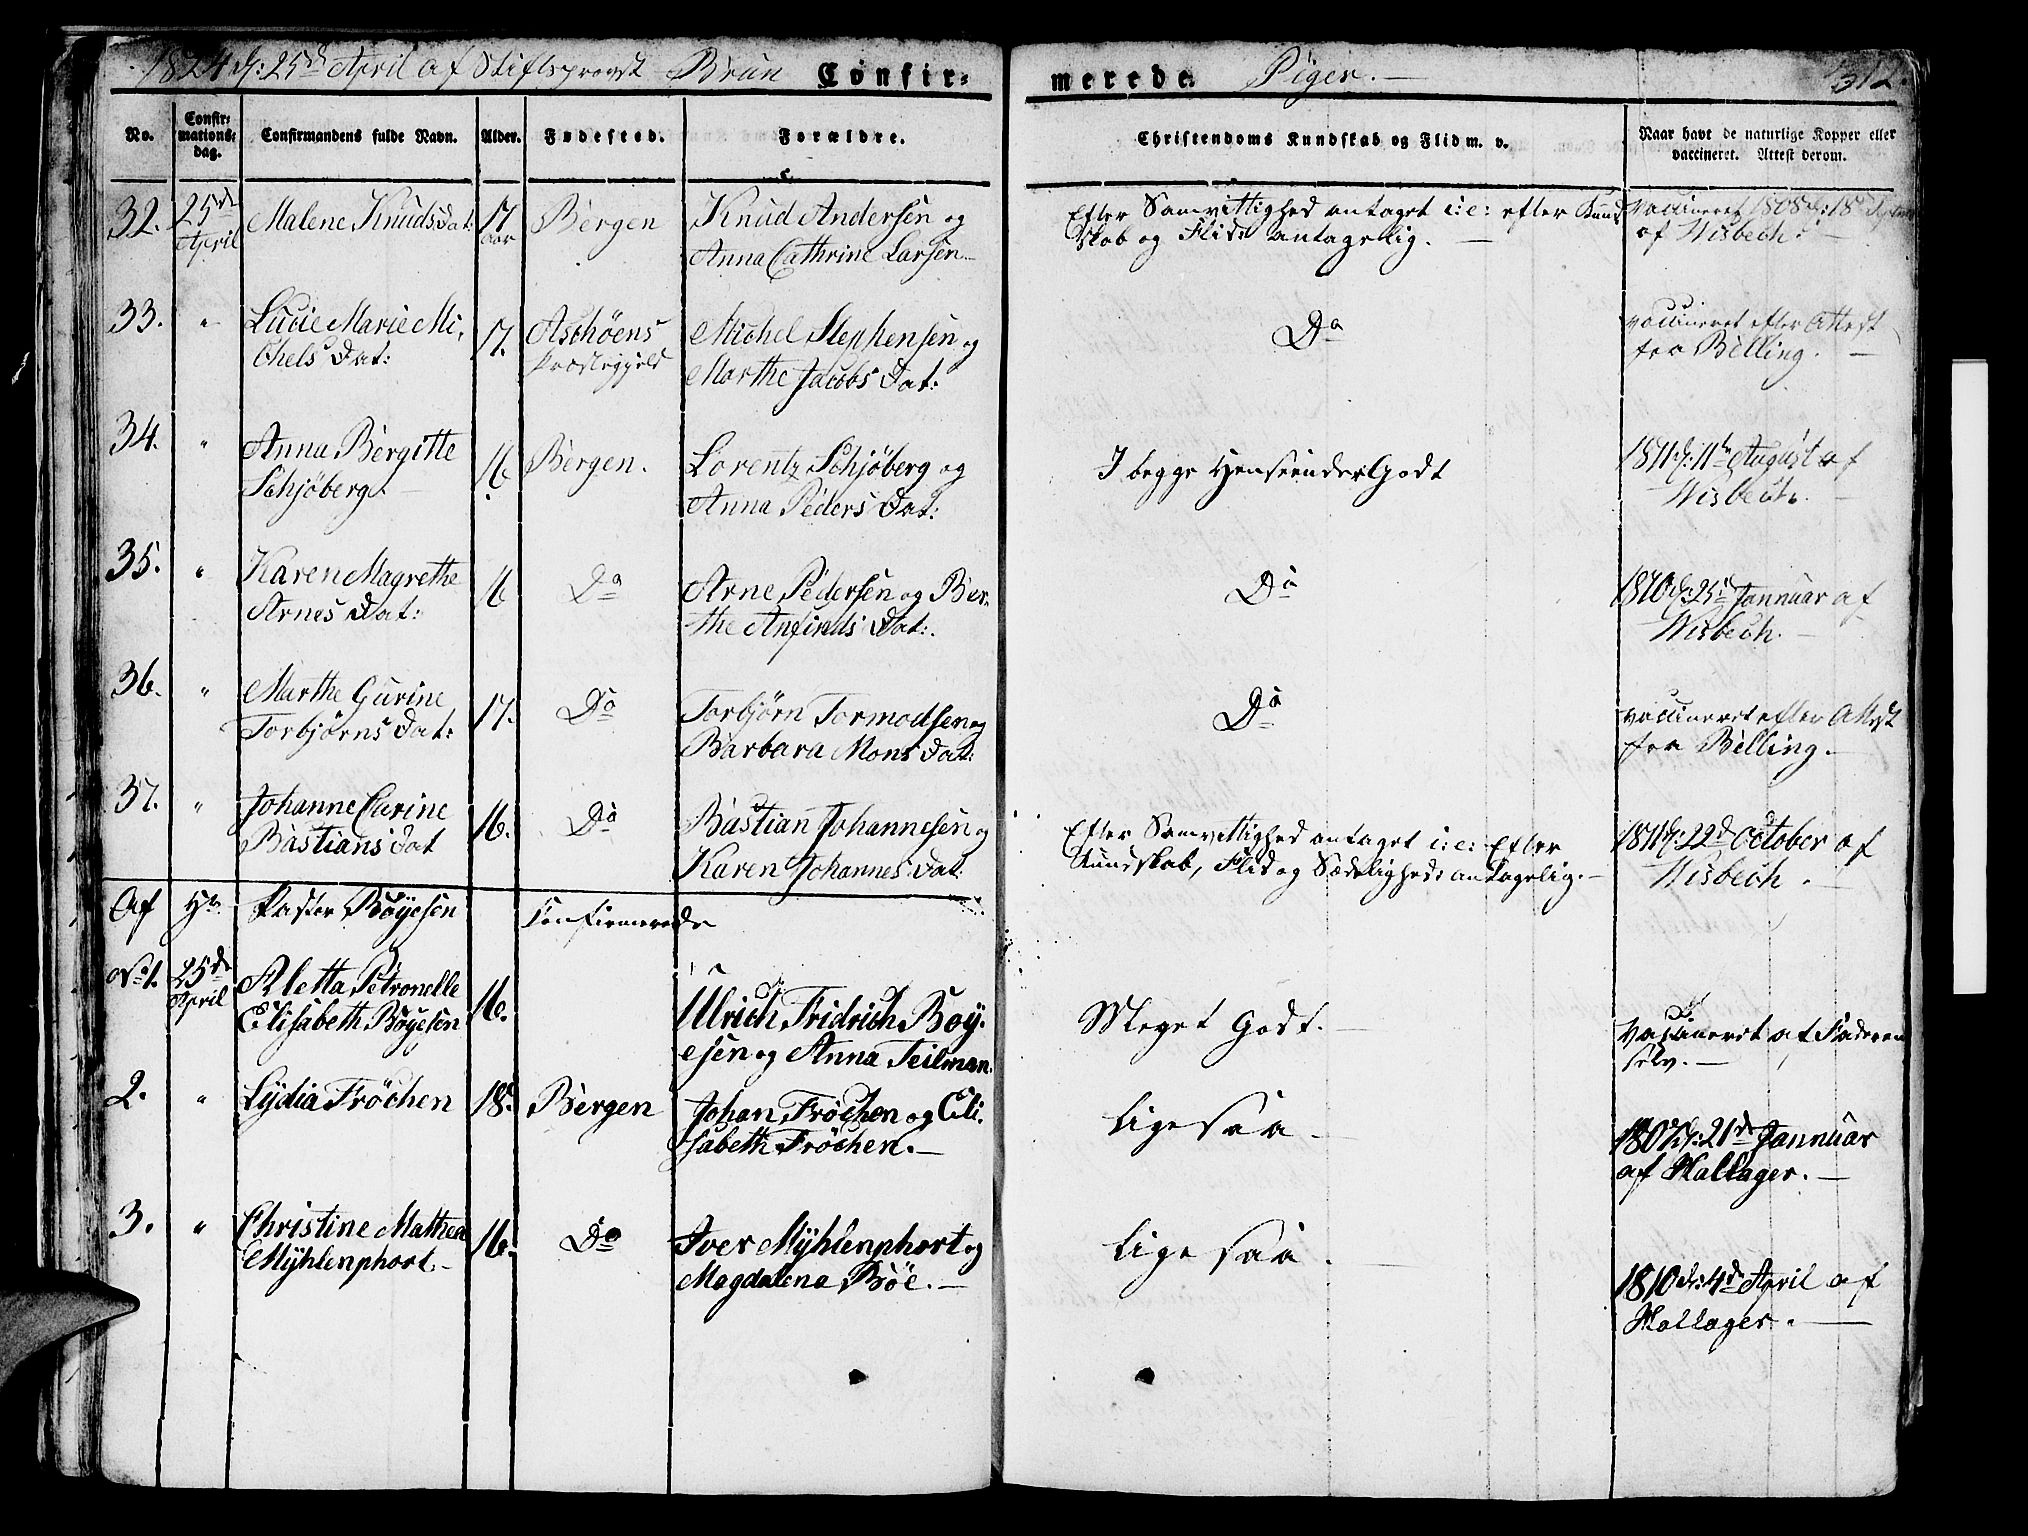 1824 d: 25de April af Stiftsprovst Brun Confir-
merede. Piger.
312.
No. Confir-mations-dag. Confirmandens fulde Navn. Alder. Fødested. Forældre.
Christendoms Kundskab og Flid m. v. Naar havt de naturlige Kopper eller
vaccineret. Attest derom.
32. 25de April Malene Knuds Dat: 17 aar Bergen Knud Andersen og
Anna Cathrine Larsen
Efter Samvittighed antaget i:e: efter Kund
skab og Flid antagelig.
Vaccineret 1808 d: 18
af Wisbech.
33. " Lucie Marie Mi-
chels Dat: 17. Aschöens
Præstegjeld
Michel Stephensen og
Marthe Jacobs Dat:
Do
vaccineret efter Attest
fra Belling.
34. " Anna Bergitte
Schjöberg. 16. Bergen. Lorentz Schjöberg og
Anna Peders Dat:
I begge Henseender Godt
1811 d: 11te August af
Wisbech.
35. " Karen Magrethe
Arnes Dat: 16 Do Arne Pedersen og Ber-
the Anfinds Dat:
Do
1810 d: 25de Jannuar af
Wisbech.
36. " Marthe Gurine
Torbjörns Dat: 17. Do Torbjörn Tormodsen og
Barbara Mons Dat:
Do
vaccineret efter Attest
fra Belling.
37. " Johanne Carine
Bastians Dat 16. Do Bastian Johannesen og
Karen Johannes Dat:
Efter Samvittighed antaget i:e: Efter
Kundskab, Flid og Sædelighed antagelig.
1811 d: 22de October af
Wisbech.
Af Hr. Pastor Böyesen Confirmerede
No 1. 25de April Aletta Petronelle
Elisabeth Böyesen 16. Ulrich Fridrich Boy-
esen og Anna Teilman.
Meget Godt.
Vaccineret af Faderen
selv.
2. " Lydia Fröchen 18. Bergen Johan Fröchen og Eli-
sabeth Fröchen.
Lige saa
1807 d: 21de Jannuar
af Hallager.
3. " Christine Mathea
Mÿhlenphort. 16. Do Iver Mÿhlenphort og
Magdalena Böe.
Lige saa.
1810 d: 4de April af
Hallager.